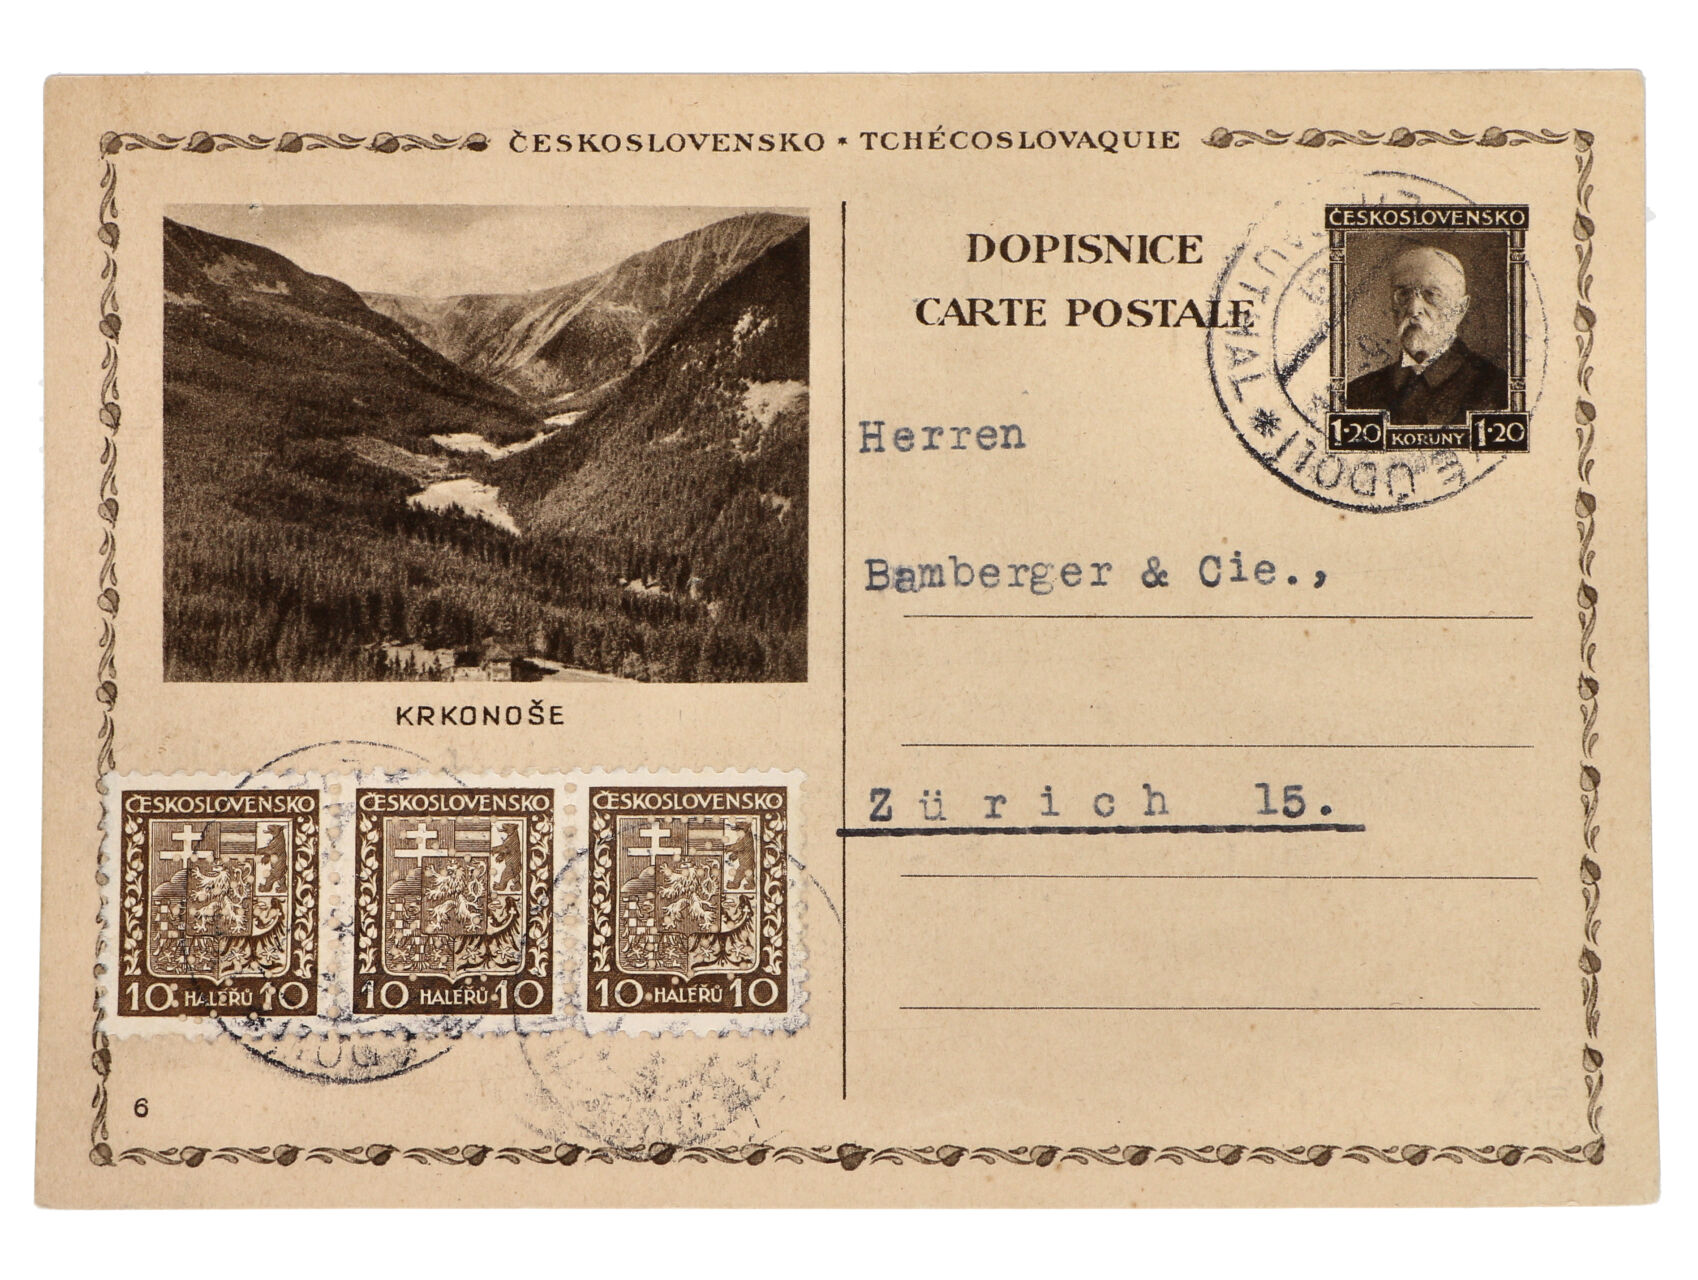 ČESKOSLOVENSKO * TCHÉCOSLOVAQUIE
DOPISNICE
CARTE POSTALE
ČESKOSLOVENSKO
1·20 KORUNY 1·20
ÚDOLÍ * 
Herren
Bamberger & Cie.,
Zürich 15.
KRKONOŠE
ČESKOSLOVENSKO
10 HALÉŘŮ 10
ČESKOSLOVENSKO
10 HALÉŘŮ 10
ČESKOSLOVENSKO
10 HALÉŘŮ 10
6